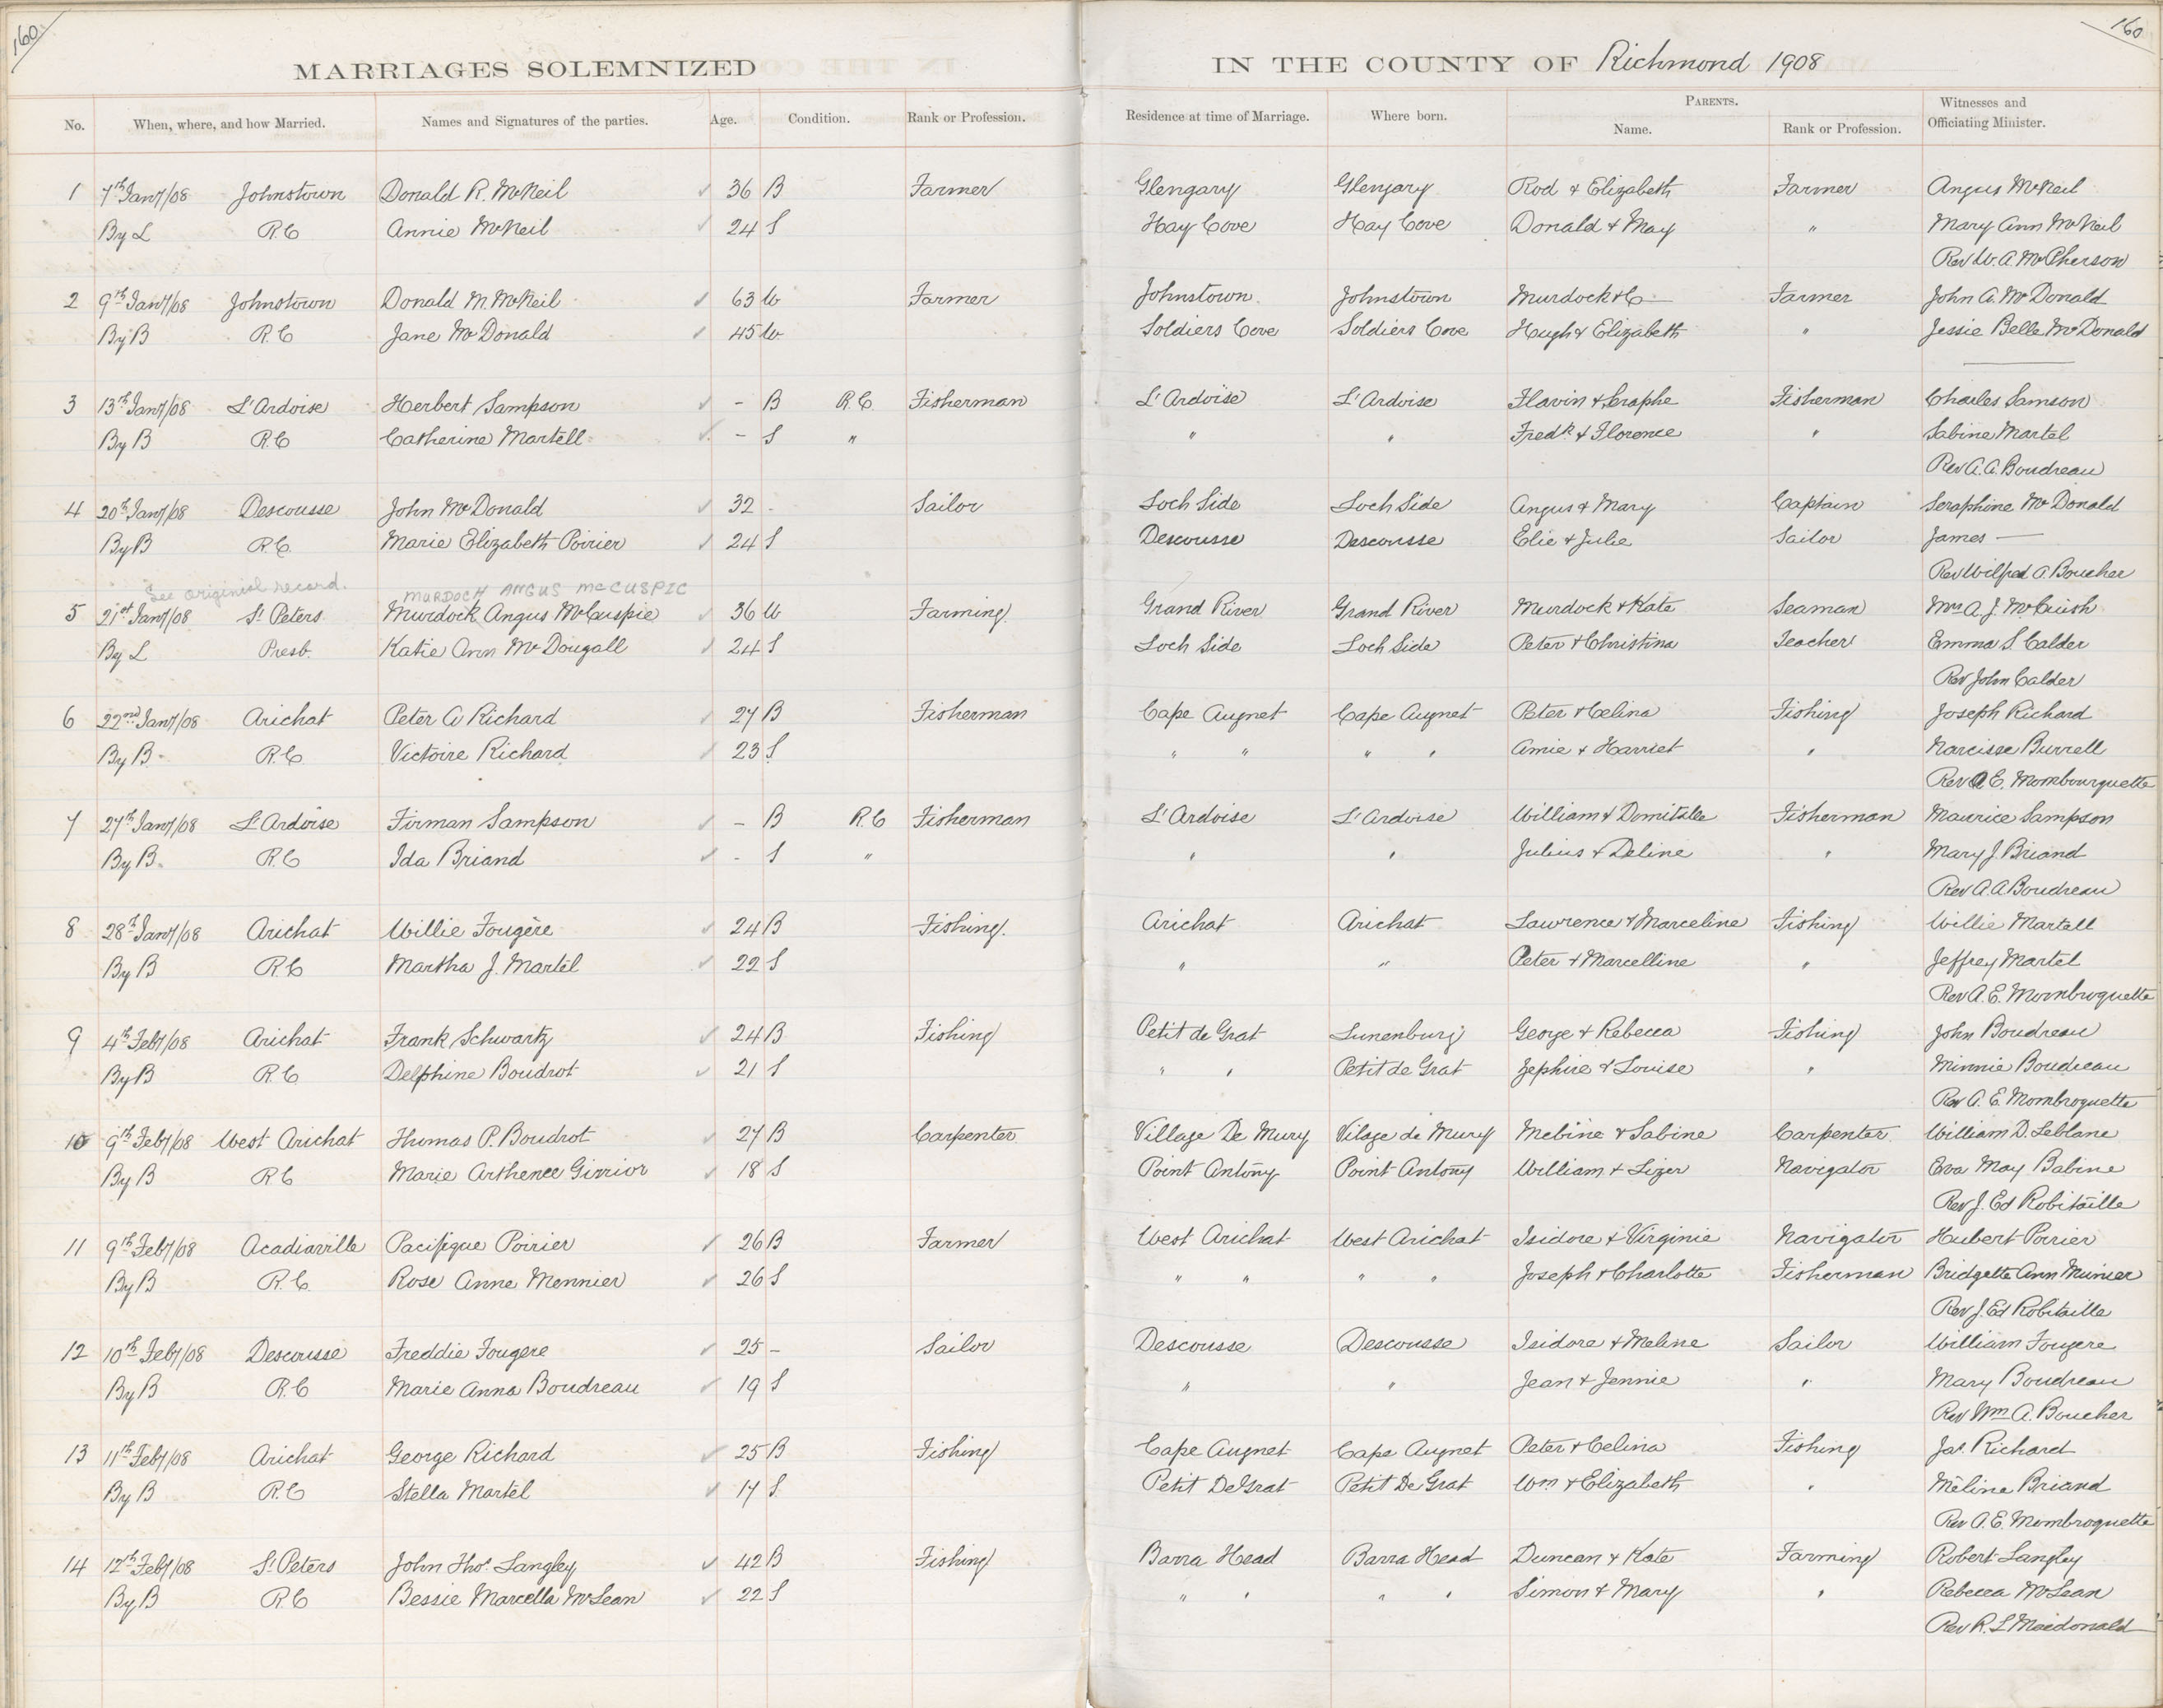 160 160
MARRIAGES SOLEMNIZED IN THE COUNTY OF Richmond 1908
No. When, where, and how Married. Names and Signatures of the parties. Age. Condition. Rank or Profession. Residence at time of Marriage. Where born. PARENTS. Name. Rank or Profession. Witnesses and Officiating Minister.
1 7th Jany/08 Johnstown Donald R. McNeil ✓ 36 B Farmer Glengary Glengary Rod & Elizabeth Farmer Angus McNeil
By L R.C Annie McNeil ✓ 24 S Hay Cove Hay Cove Donald & May " Mary Ann McNeil
Rev W. A. McPherson
2 9th Jany/08 Johnstown Donald M. McNeil ✓ 63 W Farmer Johnstown Johnstown Murdock & C— Farmer John A. McDonald
By B R.C Jane McDonald ✓ 45 W. Soldiers Cove Soldiers Cove Hugh & Elizabeth " Jessie Belle McDonald
3 13th Jany/08 L'Ardoise Herbert Sampson ✓ - B R.C. Fisherman L'Ardoise L'Ardoise Flavin & Seraphe Fisherman Charles Samson
By B R.C Catherine Martell ✓ - S " " " Fredk & Florence " Sabine Martel
Rev A. A. Boudreau
4 20th Jany/08 Descousse John McDonald ✓ 32 - Sailor Loch Side Loch Side Angus & Mary Captain Seraphine McDonald
By B R.C. Marie Elizabeth Poirier ✓ 24 S Descousse Descousse Elie & Julie Sailor James —
Rev Wilfred A. Boucher
See original record. MURDOCH ANGUS McCUSPIC
5 21st Jany/08 St Peters Murdock Angus McCuspie ✓ 36 W Farming Grand River Grand River Murdock & Kate Seaman Mrs A. J. McCuish
By L Presb. Katie Ann McDougall ✓ 24 S Loch Side Loch Side Peter & Christina Teacher Emma S. Calder
Rev John Calder
6 22nd Jany/08 Arichat Peter A Richard ✓ 27 B Fisherman Cape Augnet Cape Augnet Peter & Celina Fishing Joseph Richard
By B R.C Victoire Richard ✓ 23 S " " " " Amie & Harriet " Narcisse Burrell
Rev A E. Mombourquette
7 27th Jany/08 L'Ardoise Firman Sampson ✓ - B R.C Fisherman L'Ardoise L'Ardoise William & Domitille Fisherman Maurice Sampson
By B. R.C Ida Briand ✓ - S " " " Julius & Deline " Mary J. Briand
Rev A. A Boudreau
8 28th Jany/08 Arichat Willie Fougère ✓ 24 B Fishing. Arichat Arichat Lawrence & Marceline Fishing Willie Martell
By B R.C Martha J. Martel ✓ 22 S " " Peter & Marcelline " Jeffrey Martel
Rev A. E. Mombroquette
9 4th Feby/08 Arichat Frank Schwartz ✓ 24 B Fishing Petit de Grat Lunenburg George & Rebecca Fishing John Boudreau
By B R.C. Delphine Boudrot ✓ 21 S " " Petit de Grat Zephire & Louise " Minnie Boudreau
Rev A. E. Mombroquette
10 9th Feby/08 West Arichat Thumas P. Boudrot ✓ 27 B Carpenter Village De Mury Vilage de Mury Mebine & Sabine Carpenter William D. Leblanc
By B R C Marie Arthence Girrior ✓ 18 S Point Antony Point Antony William & Lizer Navigator Eva May Babine
Rev J. Ed Robitaille
11 9th Feby/08 Acadiaville Pacifique Poirier ✓ 26 B Farmer West Arichat West Arichat Isidore & Virginie Navigator Hubert Poirier
By B R.C. Rose Anne Mennier ✓ 26 S " " " " Joseph & Charlotte Fisherman Bridgette Ann Munier
Rev J. Ed Robitaille
12 10th Feby/08 Descousse Freddie Fougere ✓ 25 - Sailor Descousse Descousse Isidore & Meline Sailor William Fougere
By B R.C Marie Anna Boudreau ✓ 19 S " " Jean & Jennie " Mary Boudreau
Rev Wm A. Boucher
13 11th Feby/08 Arichat George Richard ✓ 25 B Fishing Cape Augnet Cape Augnet Peter & Celina Fishing Jas. Richard
By B R.C Stella Martel ✓ 17 S. Petit DeGrat Petit De Grat Wm & Elizabeth " Méline Briand
Rev A. E. Mombroquette
14 12th Feby/08 St Peters John Thos. Langley ✓ 42 B Fishing Barra Head Barra Head Duncan & Kate Farming Robert Langley
By B R.C Bessie Marcella McLean ✓ 22 S " " " " Simon & Mary " Rebecca McLean
Rev R. L Macdonald